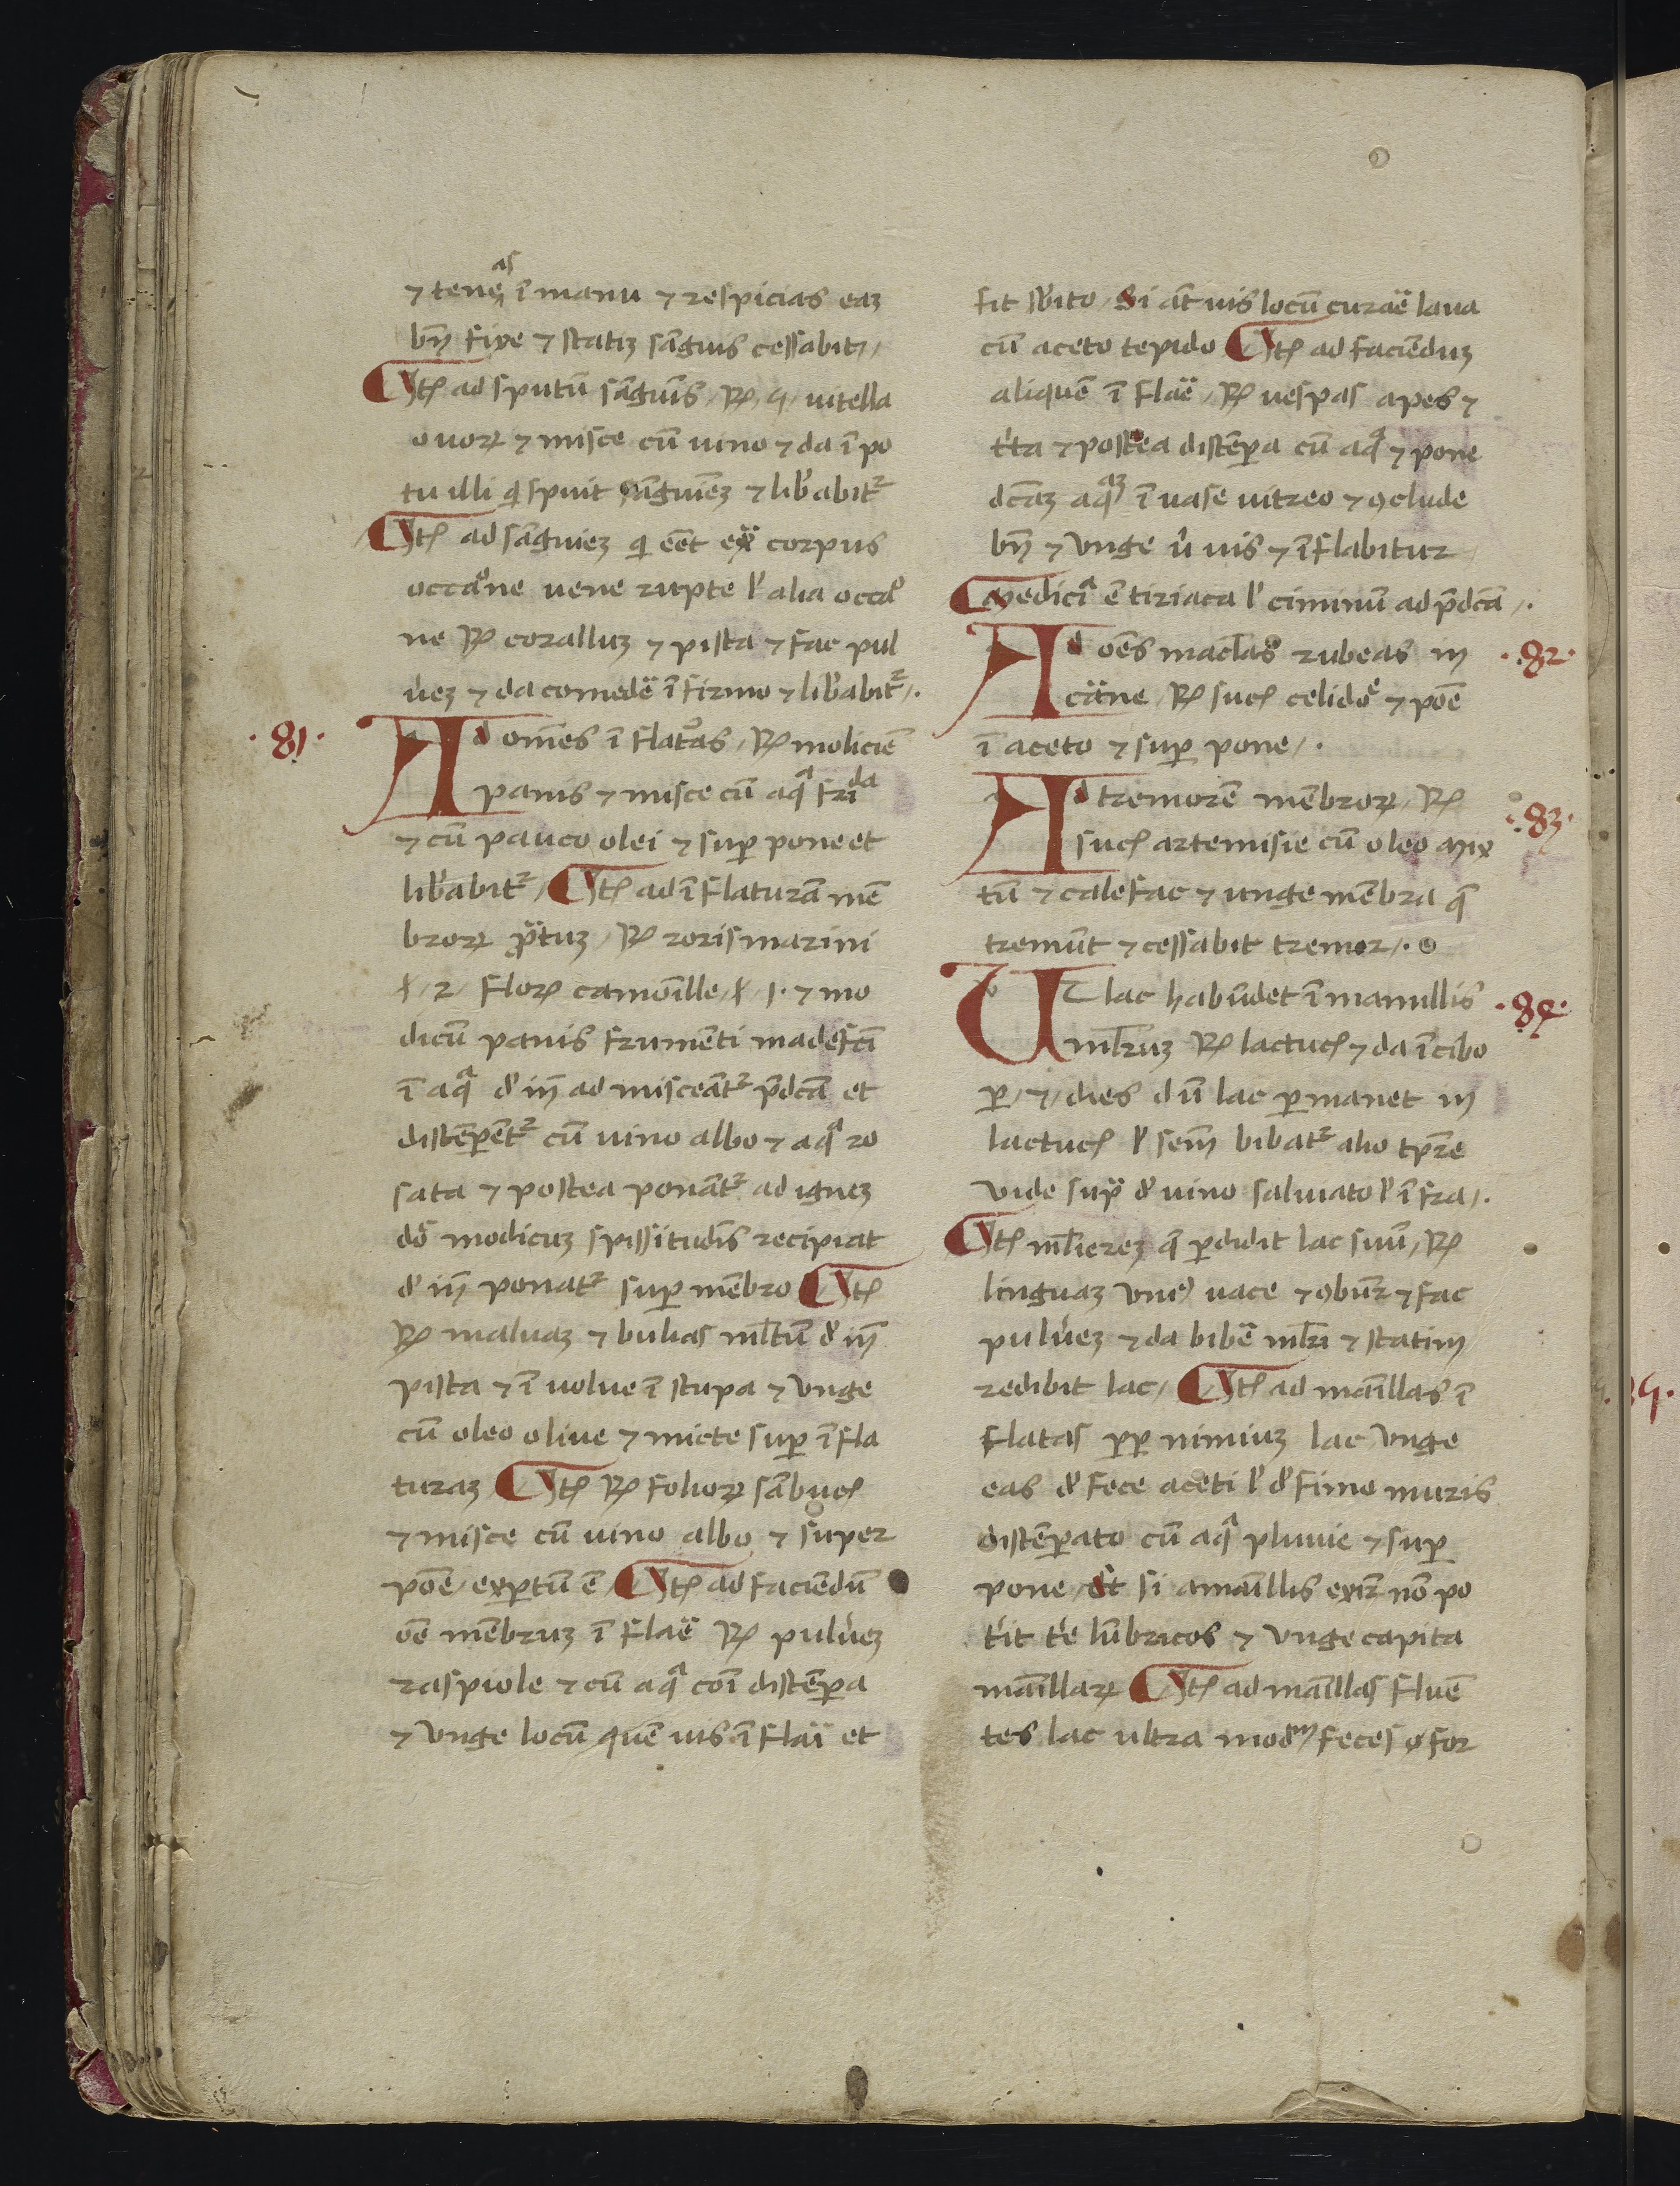 ⁊ teneas ī manu ⁊ respicias eaꝫ
bn̄ fixe ⁊ statiꝫ sāguis cessabit /
Itē ad sputū sāguīs / ℞ / 4 / uitella
ouoꝝ ⁊ misce cū uino ⁊ da ī po
tu illi qi spuit sāguīeꝫ ⁊ lib̄abitᷣ
Itē ad sāguīeꝫ qi eēt ex̄ corpus
occāone uene rupte lꝰ alia occāo
ne ℞ coralluꝫ ⁊ pista ⁊ fac pul
u̓eꝫ ⁊ da comedē īfirmo ⁊ lib̄abitᷣ /.
·81·
Ad omēs īflatōas / ℞ moliciē
panis ⁊ misce cū aqᵃ friᵈᵃ
⁊ cū pauco olei ⁊ suꝑ pone et
lib̄abitᷣ / Itē ad īflaturā mē
broꝝ ꝓ̄tuꝫ / ℞ rorismarini
/ 2 / floꝝ camōille / 1 · ⁊ mo
dicū panis frumēti madefc̄i
ī aqᵃ dꝰ īn̄ ad misceātᷣ p̄dc̄a et
distēꝑētᷣ cū uino albo ⁊ aqᵃ ro
sata ⁊ postea ponātᷣ ad igneꝫ
dō modicuꝫ spissitudīs recipiat
dꝰ īn̄ ponatᷣ suꝑ mēbro Itē
℞ maluaꝫ ⁊ bulias ml̄tū dꝰ īn̄
pista ⁊ īuolue ī stupa ⁊ vnge
cū oleo oliue ⁊ micte suꝑ īfla
turaꝫ Itē ℞ folioꝝ sābucꝭ
⁊ misce cū uino albo ⁊ super
pōe / exꝑtū ē / Itē ad faciendū
oē mēbruꝫ īflaē ℞ pulu̓eꝫ
raspiole ⁊ cū aqᵃ cōi distēꝑa
⁊ vnge locū quē uis īflaī et
fit sb̓ito / Si āt uis locū curaē laua
cū aceto tepido Itē ad faciēduꝫ
aliquē īflaē / ℞ uespas apes ⁊
t̓ta ⁊ postea distēꝑa cū aqᵃ ⁊ pone
dc̄aꝫ aqᵃꝫ ī uase uitreo ⁊ ꝯclude
bn̄ ⁊ vnge u̓ uis ⁊ īflabitur
Medicīa ē tiriaca lꝰ ciminū ad p̄dc̄a /.
Ad oēs macl̄as rubeas in
·82·
cāne / ℞ sucꝭ celidōe ⁊ pōe
ī aceto ⁊ suꝑ pone /.
Ad tremorē mēbroꝝ / ℞
·83·
sucꝭ artemisie cū oleo mix
tū ⁊ calefac ⁊ unge mēbra q̄
tremūt ⁊ cessabit tremor /.
UT lac habūdet ī mamillis
·84·
ml̄ruꝫ ℞ lactucꝭ ⁊ da ī cibo
ꝑ / 7 / dies dū lac ꝑmanet in
lactucꝭ lꝰ sem̄ bibatᷣ alio tp̄re
vide supᵃ dꝰ uino saluiato lꝰ īfra /.
Itē ml̄iereꝫ q̄ ꝑdidit lac suū / ℞
linguaꝫ vniꝰ uace ⁊ ꝯbur̄ ⁊ fac
pulu̓eꝫ ⁊ da bibē ml̄ri ⁊ statim
redibit lac / Itē ad māillas ī
flatas ꝓꝑ nimiuꝫ lac vnge
eas dꝰ fece aceti lꝰ dꝰ fimo muris
distēꝑato cū aqᵃ pluuie ⁊ suꝑ
pone / Et si amāillis exir̄ nō po
t̓it t̓e lūbricos ⁊ vnge capita
māillaꝝ Itē ad māillas fluē
tes lac ultra modᵘᵐ / feces ꝯfor